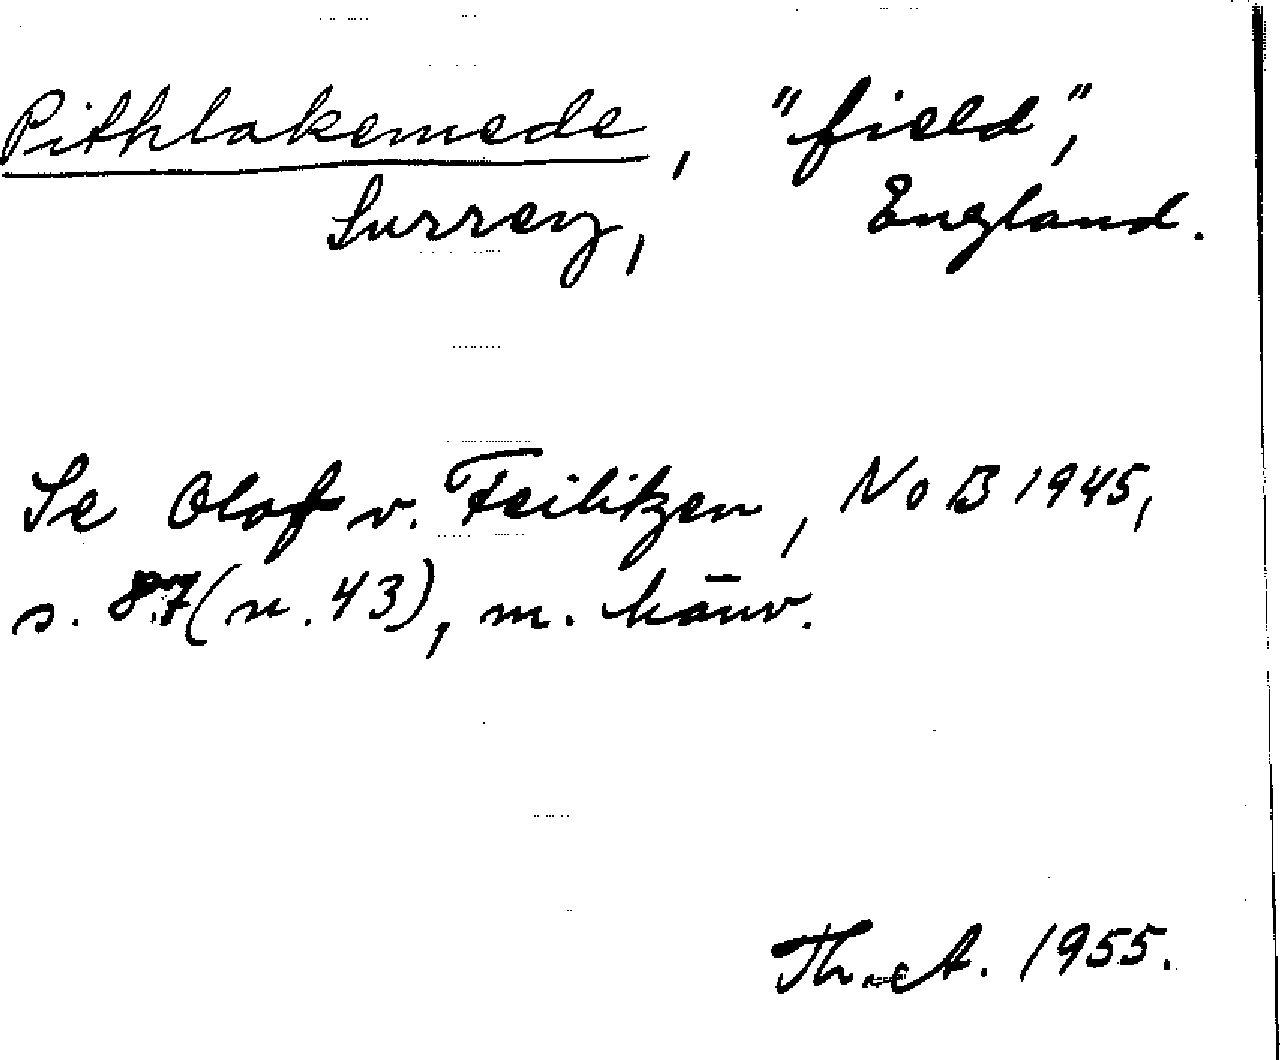 Pithlakemede, "field",
Surrey, England.
Se Olof v. Feilitzen, NoB 1945,
s. 87 (n. 43), m. hänv.
Th. A. 1955.